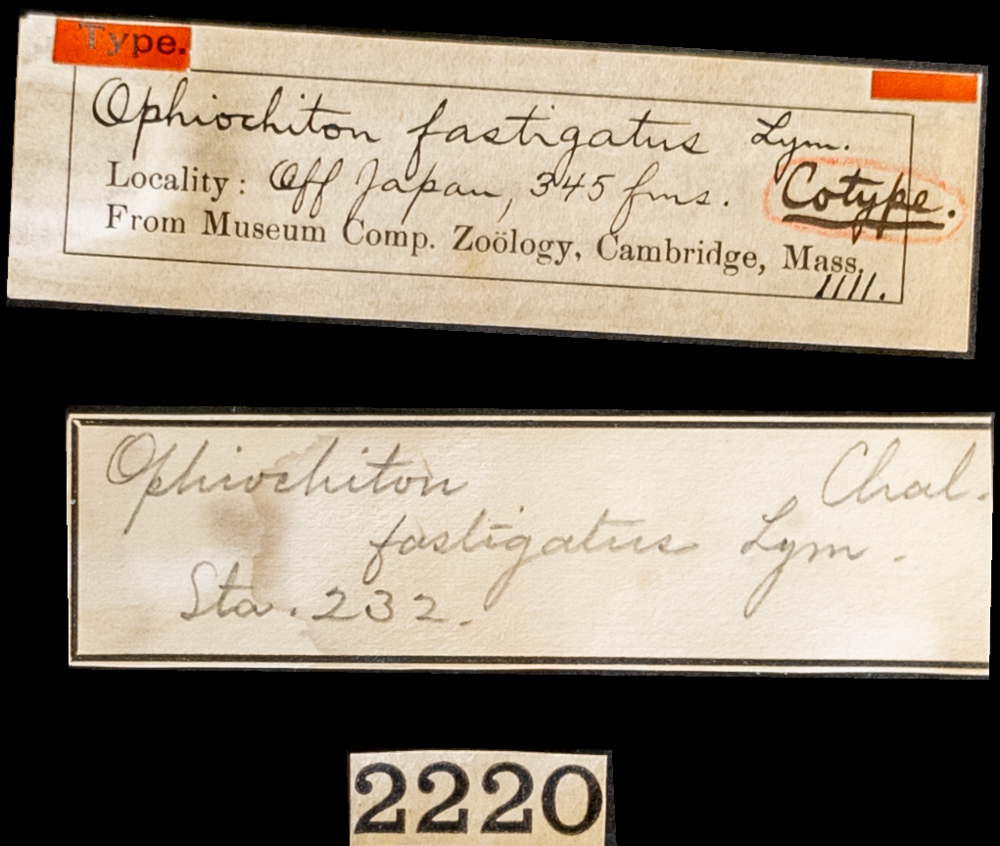 Type.
Ophiochiton fastigatus Lym.
Locality: Off Japan, 345 fms. Cotype.
From Museum Comp. Zoölogy, Cambridge, Mass.
1111.
Ophiochiton Chal.
fastigatus Lym.
Sta. 232.
2220